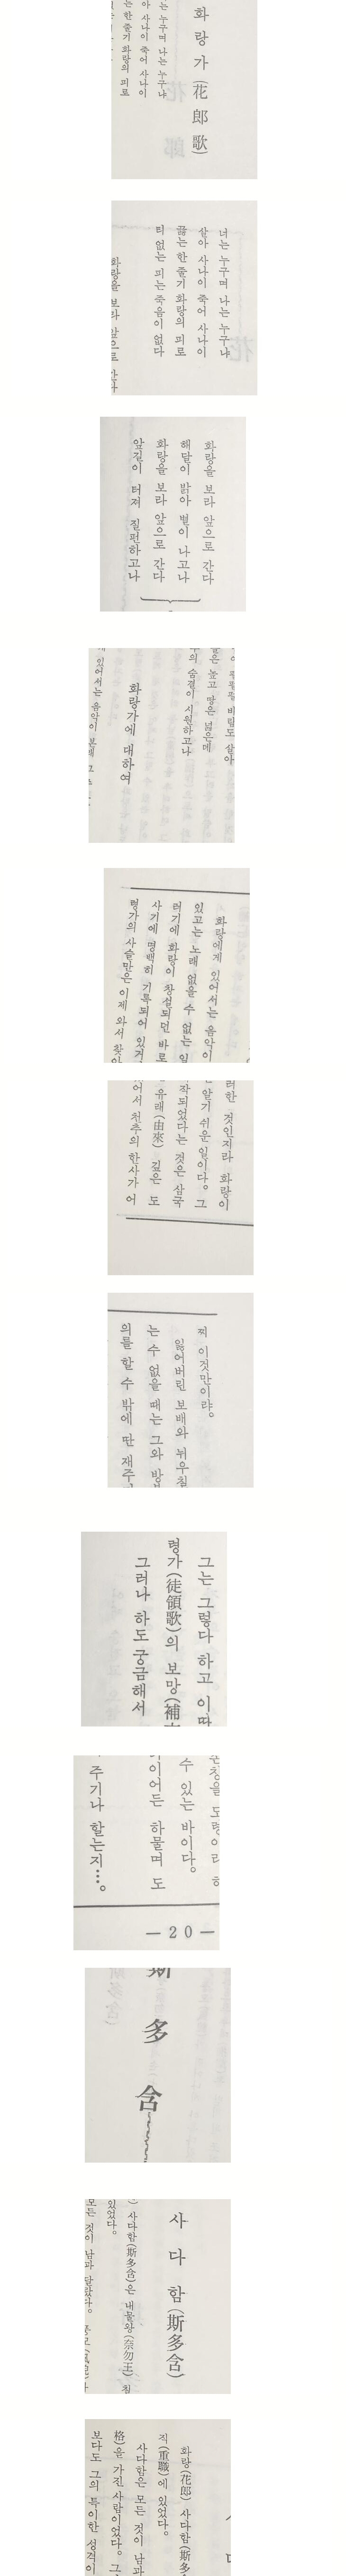 화랑가(花郎歌)
는 누구며 나는 누구냐
아 사나이 죽어 사나이
는 한 줄기 화랑의 피로
너는 누구며 나는 누구냐
살아 사나이 죽어 사나이
끓는 한 줄기 화랑의 피로
티 없는 피는 죽음이 없다
화랑을 보라 앞으로 간다
화랑을 보라 앞으로 간다
해달이 밝아 별이 나고나
화랑을 보라 앞으로 간다
앞길이 터져 질펀하고나
높고 땅은 넓은데
의 숨결이 시원하고나
화랑가에 대하여
있어서는 음악이
화랑에게 있어서는 음악이
있고는 노래 없을 수 없는 일
러기에 화랑이 창설되던 바로
사기에 명백히 기록되어 있거
령가의 사슬만은 이제 와서 찾아
러한 것인지라 화랑이
알기 쉬운 일이다. 그
작되었다는 것은 삼국
유래(由來) 깊은 도
어서 천추의 한사가 어
찌 이것만이랴.
잃어버린 보배와 뉘우칠
는 수 없을 때는 그와 방
의를 할 수 밖에 딴 재주
그는 그렇다 하고 이
령가(徒領歌)의 보망(補
그러나 하도 궁금해서
수 있는 바이다.
이어든 하물며 도
주기나 할는지⋯.
— 20 —
斯多含
사다함(斯多含)
사다함(斯多含)은 내물왕(奈勿王)
있었다.
모든 것이 남과 달랐다.
화랑(花郎) 사다함(斯多
직(重職)에 있었다.
사다함은 모든 것이 남과
格)을 가진 사람이었다. 그
보다도 그의 특이한 성격이